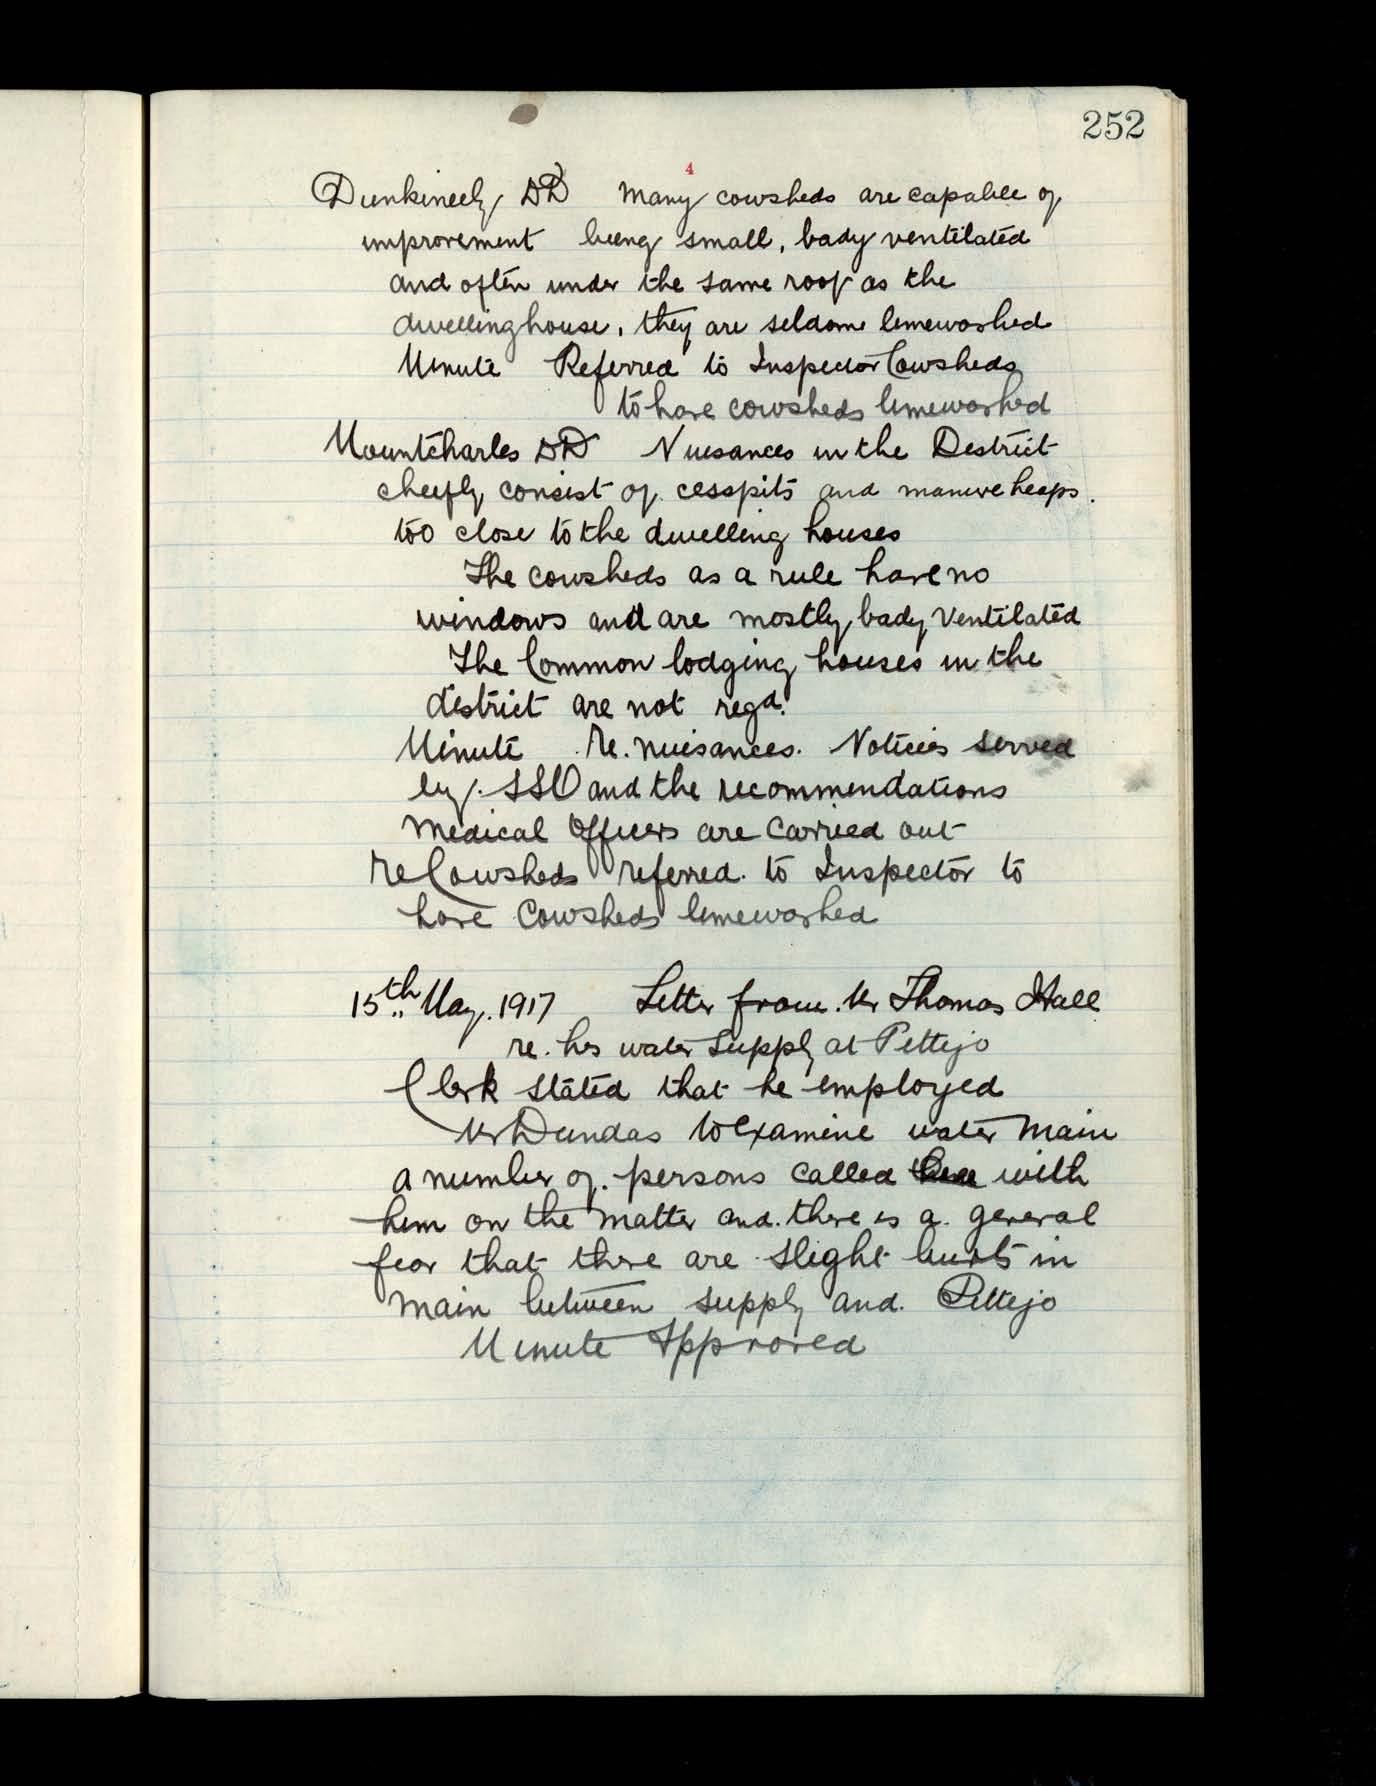 252
4
Dunkineely DD Many cowsheds are capable of
improvement being small, bady ventilated
and often under the same roof as the
dwelling house, they are seldome limewashed
Minute Referred to Inspector Cowsheds
to have cowsheds limewashed
Mountcharles DD Nuisances in the District
cheifly consist of cesspits and manure heaps.
too close to the dwelling houses
The cowsheds as a rule have no
windows and are mostly bady ventilated
The Common lodging houses in the
district are not regd.
Minute Re. nuisances. Notices served
by SSO and the recommendations
Medical Officers are Carried out
Re Cowsheds referred to Inspector to
have Cowsheds limewashed
15th May. 1917 Letter from Mr Thomas Hall
re. his water supply at Pettigo
Clerk stated that he employed
Mr Dundas to Examine water Main
a number of persons called with
him on the Matter and there is a general
fear that there are slight bursts in
Main between supply and Pettigo
Minute Approved